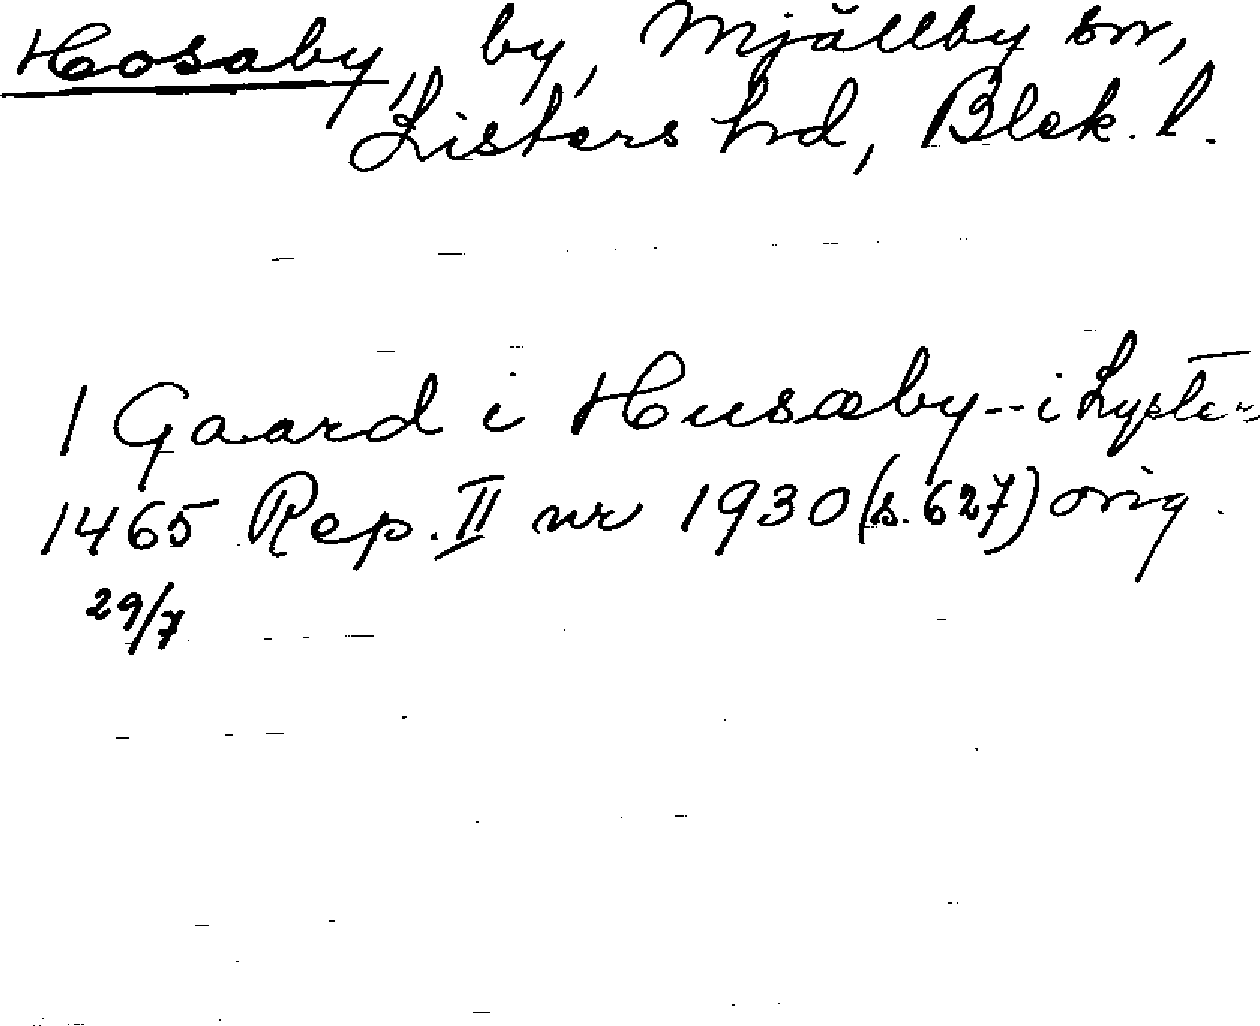 Hosaby, by, Mjällby sn,
Listers hd, Blek. l.
1 Gaard i Husæby -- i Lyster
1465 Rep. II nr 1930 (s. 627) orig.
29/7